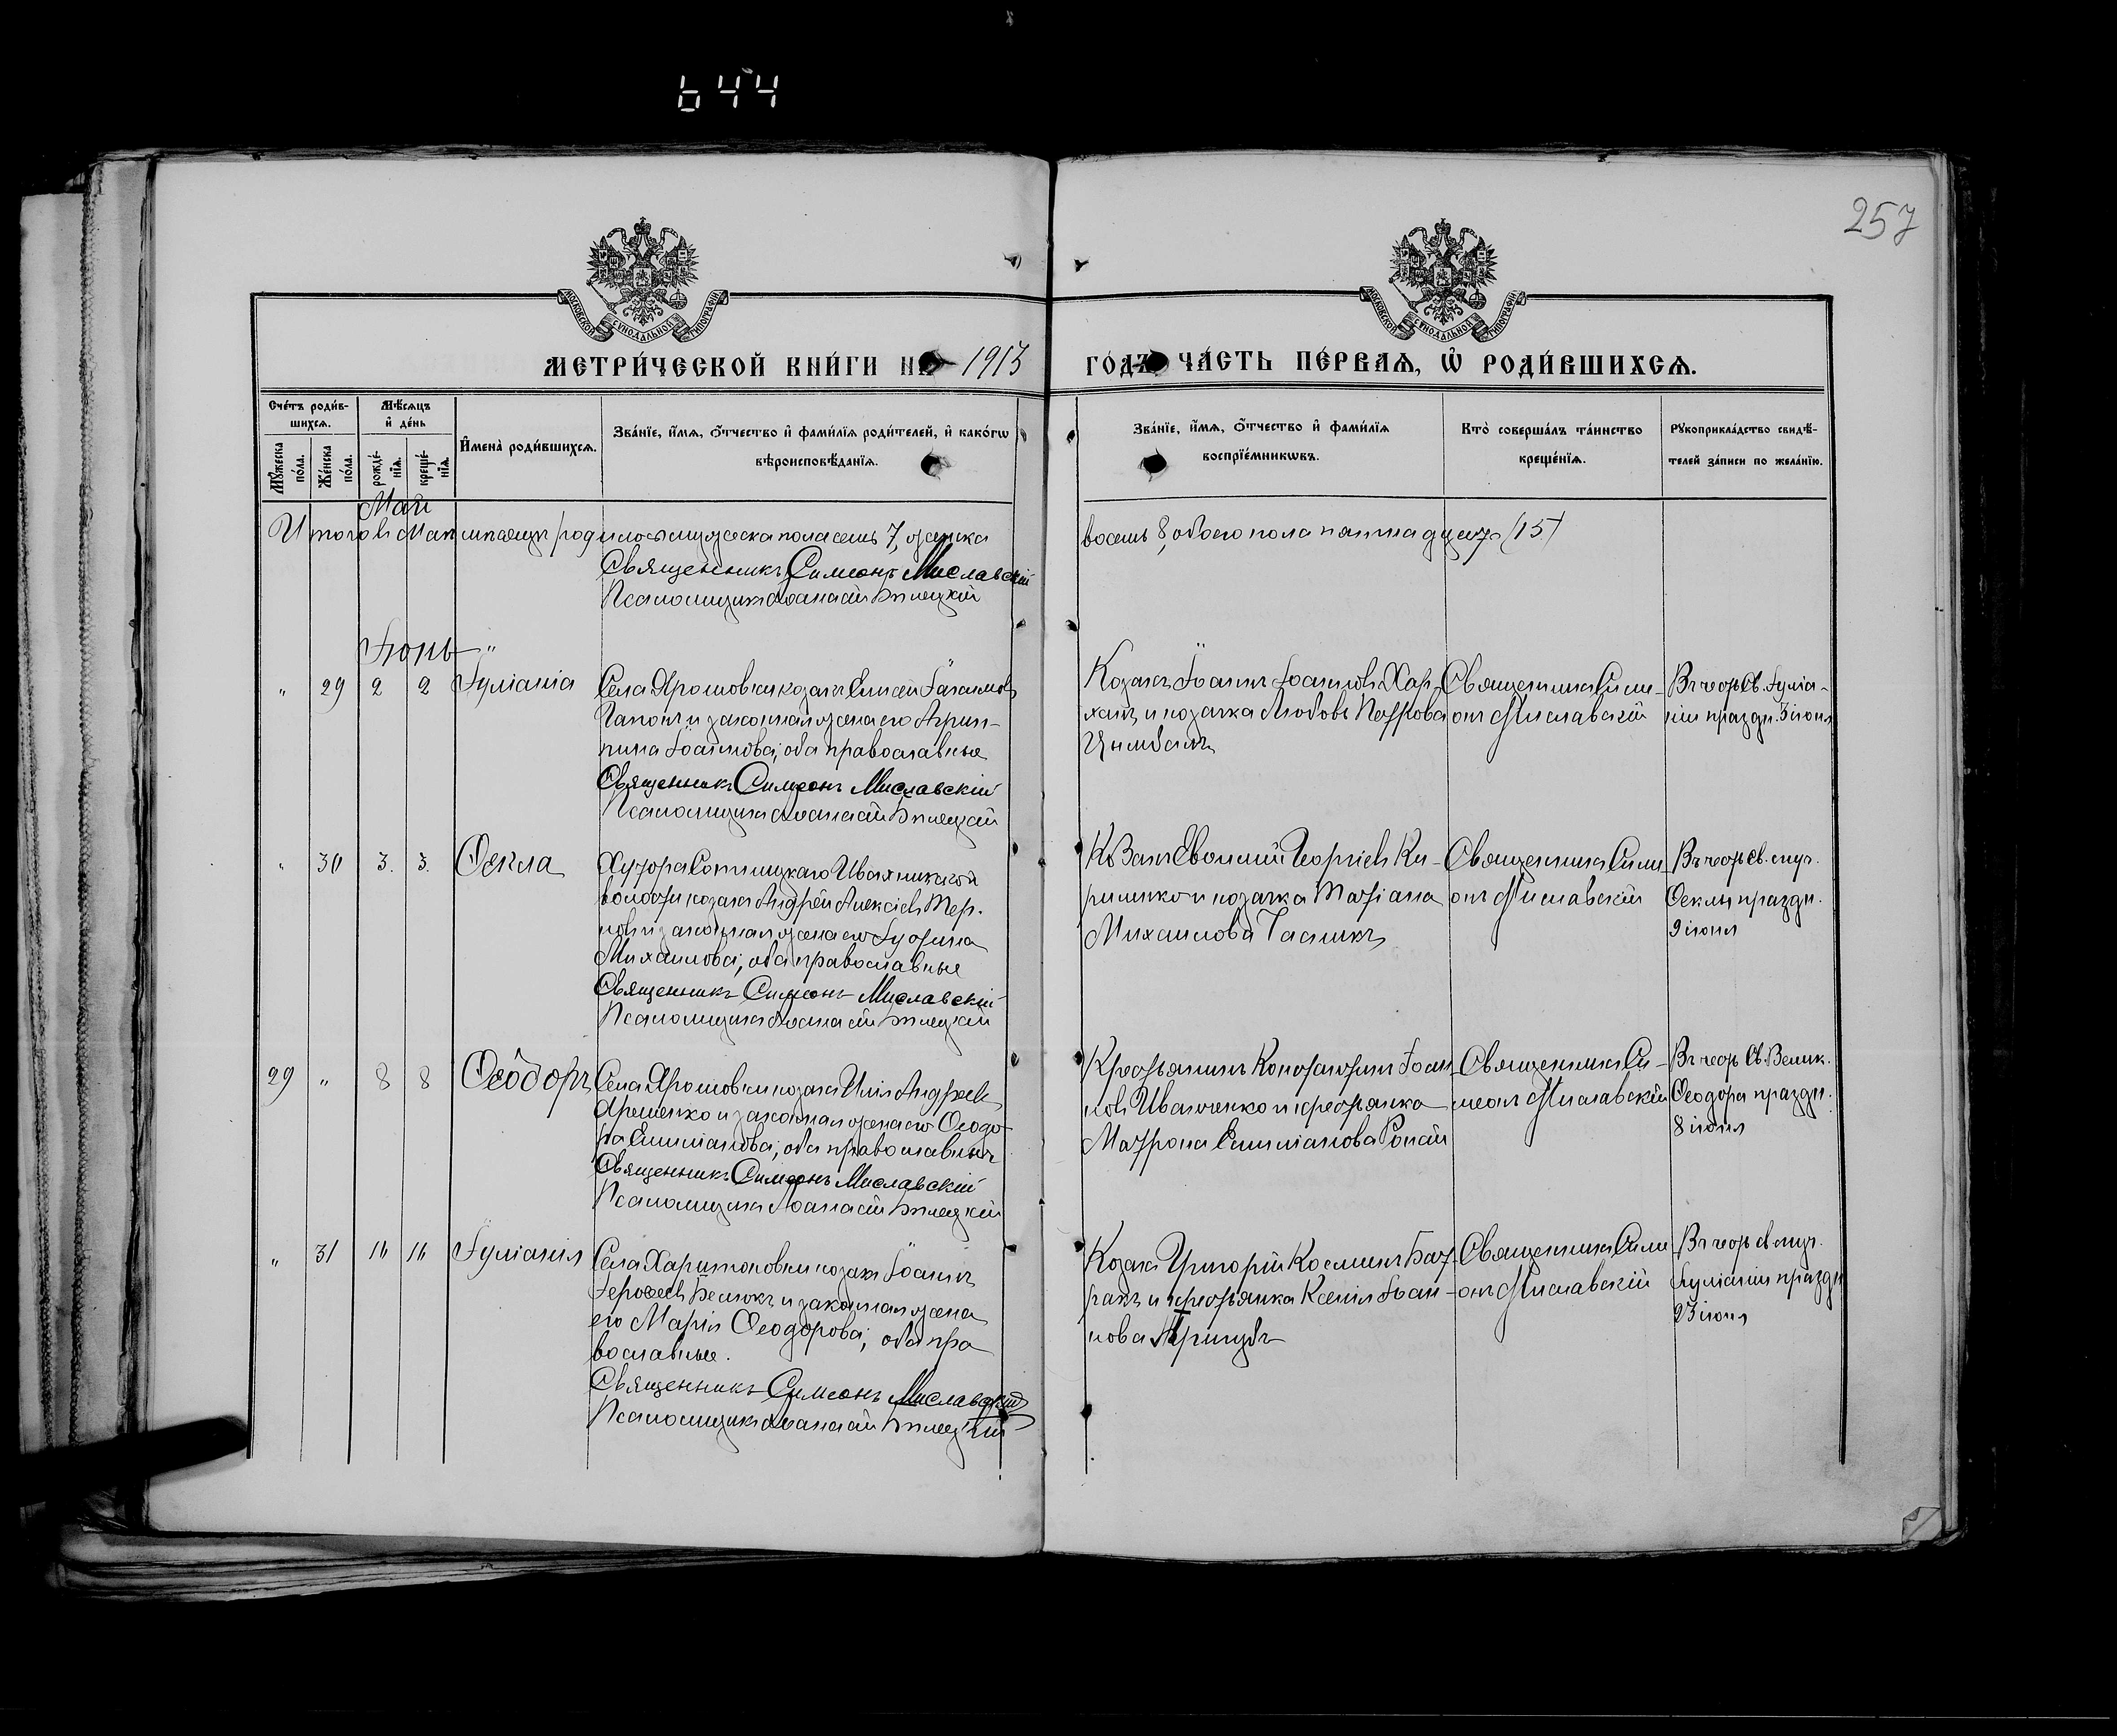 644
257
МОСКОВСКОЙ СѴНОДАЛЬНОЙ ТИПОГРАФІИ
МОСКОВСКОЙ СѴНОДАЛЬНОЙ ТИПОГРАФІИ
МЕТРИ́ЧЕСКОЙ КНИ́ГИ НА 1913
ГО́ДЪ ЧА́СТЬ ПЕ́РВАѦ, Ѡ҆ РОДИ́ВШИХСѦ.
Сче́тъ роди́в-
шихсѧ.
Мꙋ́жеска
по́ла.
Же́нска
по́ла.
Мѣ́сѧцъ
и҆ де́нь
рожде́-
нїѧ.
креще́-
нїѧ.
И҆мена̀ роди́вшихсѧ.
Зва́нїе, и҆́мѧ, ѻ҆́тчество и҆ фами́лїѧ роди́телей, и҆ како́гѡ
вѣроисповѣ́данїѧ.
Зва́нїе, и҆́мѧ, ѻ҆́тчество и҆ фами́лїѧ
воспрїе́мникѡвъ.
Кто̀ соверша́лъ та́инство
креще́нїѧ.
Рꙋкоприкла́дство свидѣ́-
телей за́писи по жела́нїю.
Май
Итого въ Маѣ мѣсяцѣ родилось мужеска пола семь 7, женска
восемь 8, обоего пола пятнадцать (15)
Священникъ Симеонъ Миславскій
Псаломщикъ Аѳанасій Бѣлецкій
Іюнь
" 29 2 2 Іуліанія
Села Ярошовки козакъ Елисей
Гапонъ и законная жена его Агрип-
пина Іоаннова, оба православные
Священникъ Симеонъ Миславскій
Псаломщикъ Аѳанасій Бѣлецкій
Козакъ Іоаннъ Іоанновъ Хар-
ханъ и козачка Любовь Петрова
Цымбалъ
Священникъ Симе-
онъ Миславскій
Въ честь Св. Іуліа-
ніи праздн. 3 іюня
" 30 3. 3. Ѳекла
Хутора Сотницкаго Ивахникской
волости козакъ Андрей Алексіевъ Тер-
новъ и законная жена его Іустина
Михаилова, оба православные
Священникъ Симеонъ Миславскій
Псаломщикъ Аѳанасій Бѣлецкій
Козакъ Евѳимій Георгіевъ Ки-
риленко и козачка Татіана
Михаилова
Священникъ Симе-
онъ Миславскій
Въ честь Св. муч.
Ѳеклы праздн.
9 іюня
29 " 8 8 Ѳеодоръ
Села Ярошовки козакъ Илія Андреевъ
Ярешенко и законная жена его Ѳеодо-
ра Емиліанова, оба православные
Священникъ Симеонъ Миславскій
Псаломщикъ Аѳанасій Бѣлецкій
Крестьянинъ Конофонтъ Іоан-
новъ Иванченко и крестьянка
Матрона Емиліанова
Священникъ Си-
меонъ Миславскій
Въ честь Св. Велик.
Ѳеодора праздн.
8 іюня
" 31 16 16 Іуліанія
Села Харитоновки козакъ Іоаннъ
Іероѳеевъ и законная жена
его Марія Ѳеодорова, оба пра
вославные.
Священникъ Симеонъ Миславскій
Псаломщикъ Аѳанасій Бѣлецкій
Козакъ Григорій Косминъ Бат-
ракъ и крестьянка Ксенія Іоан-
нова
Священникъ Симе-
онъ Миславскій
Въ честь св. муч.
Іуліаніи праздн
23 іюня